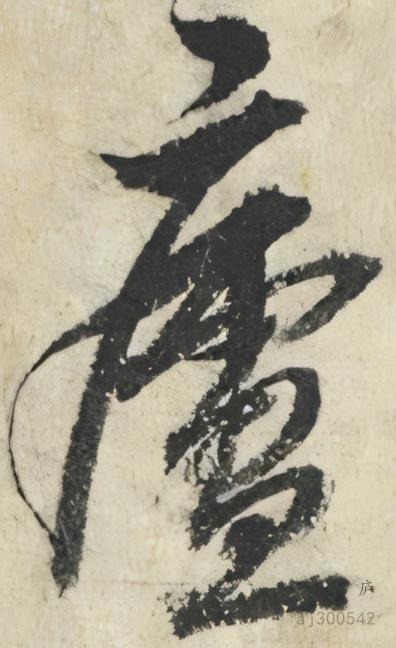 廬
庐
aj300542